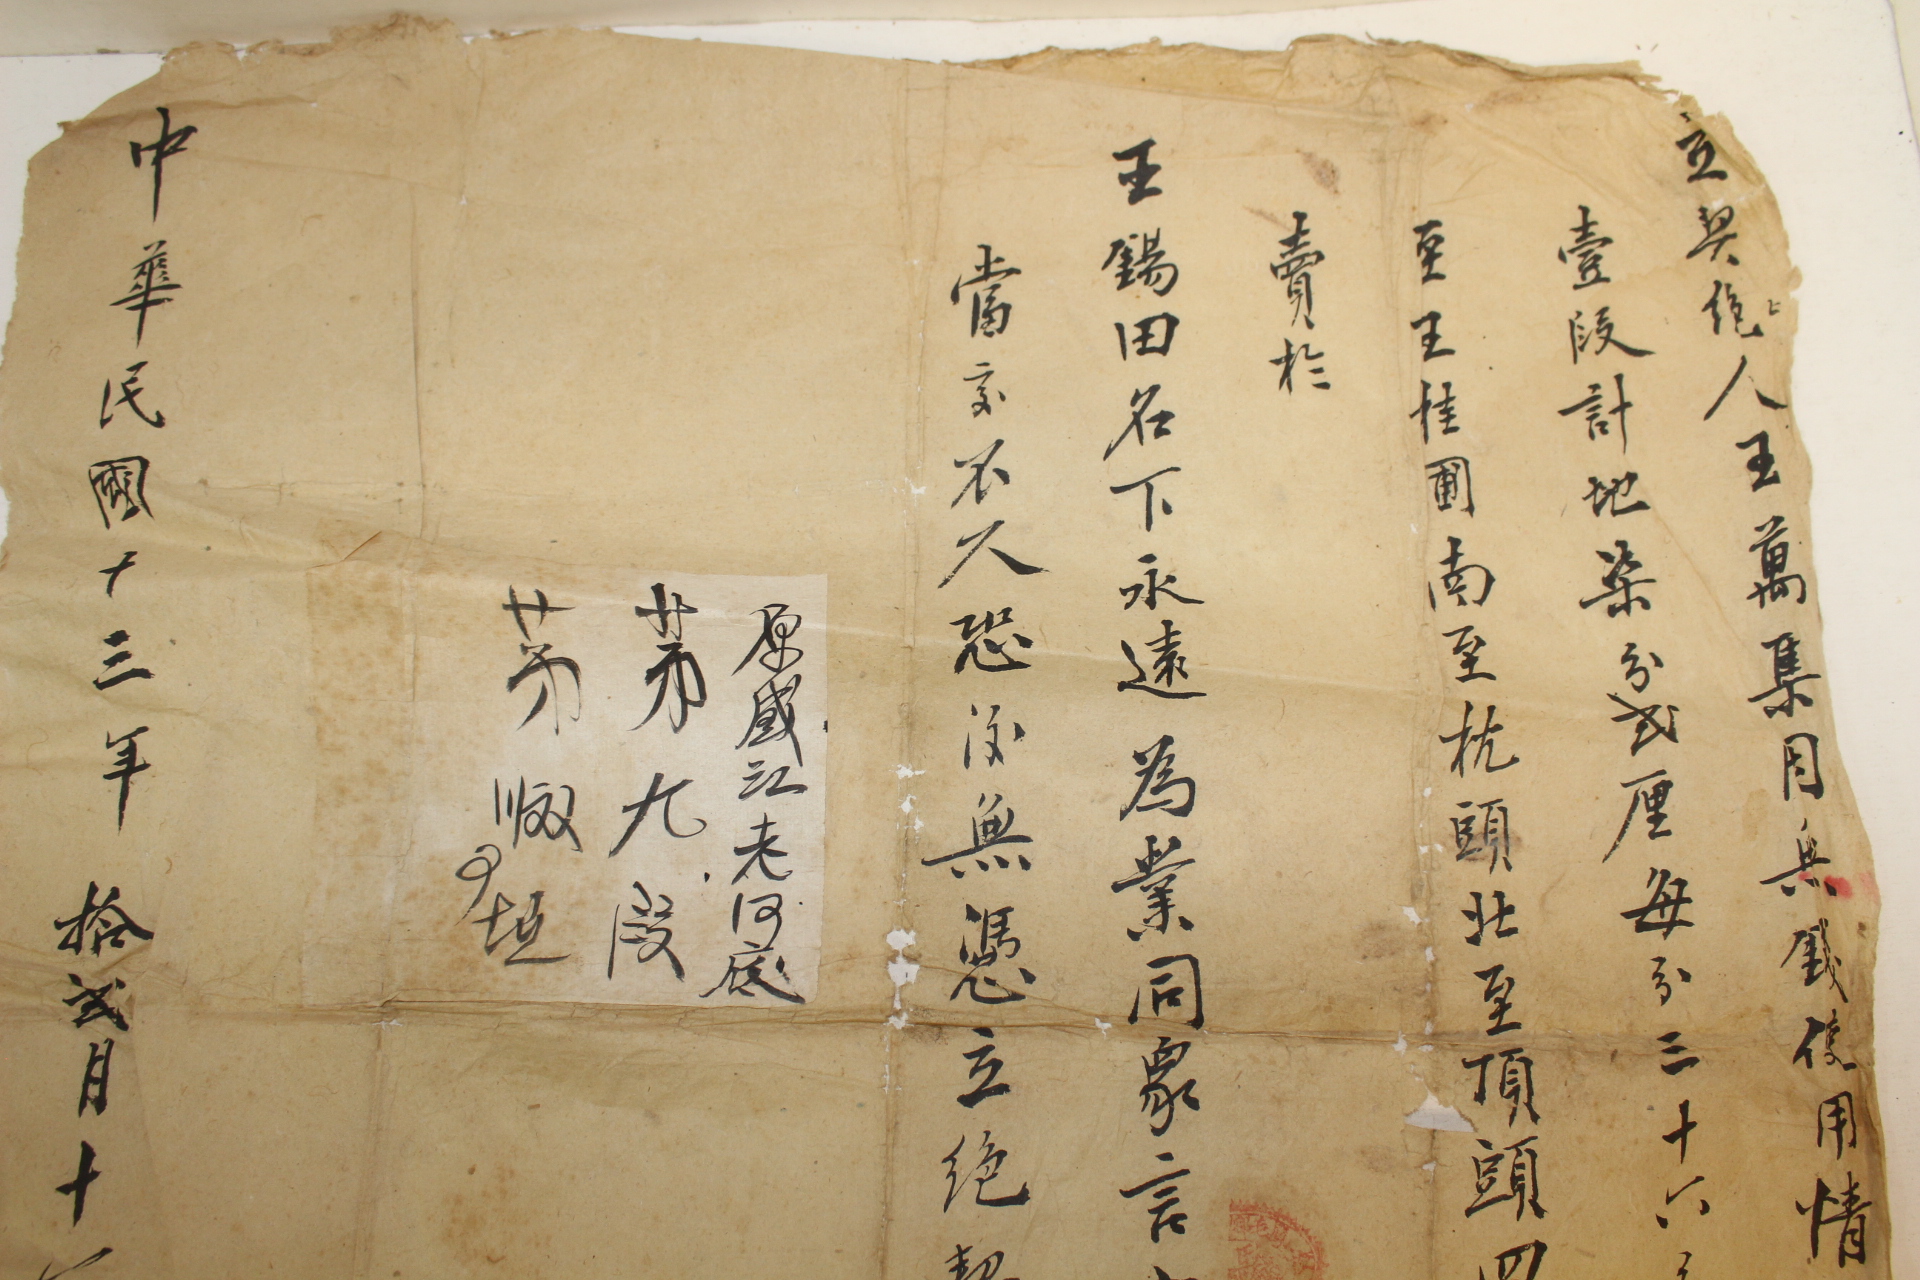 立契絕人王萬集因無錢使用情
壹段計地柒分弍厘每分三十六
至王桂圃南至枕頭北至頂頭四
賣於
王錫田名下永遠為業同眾言
當交不欠恐後無憑立絕契
原盛江老河底
第九段
第
坵
中華民國十三年 拾弍月十